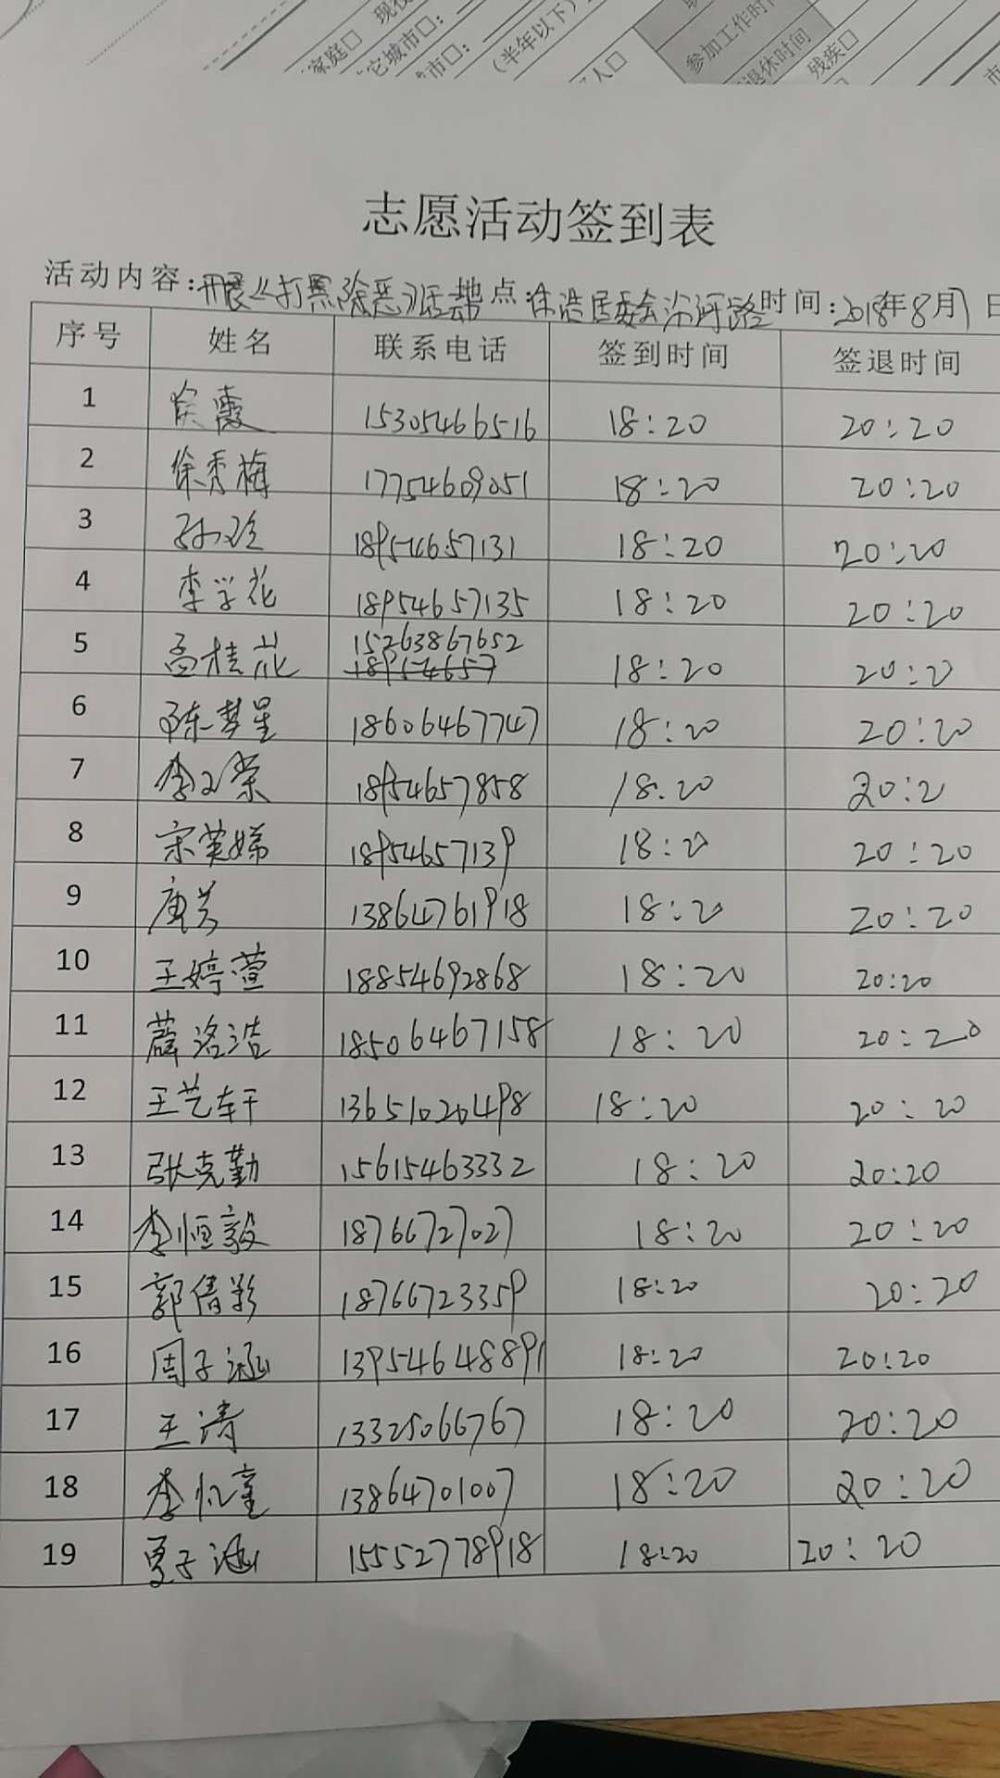 家庭□ 现役
它城市□:
市□: (半年以下)
人□ 参加工作时间
退休时间
残疾□
市
志愿活动签到表
活动内容:开展《打黑除恶》活动 地点: 居委会 时间:2018年8月7日
序号 姓名 联系电话 签到时间 签退时间
1 侯霞 15305466516 18:20 20:20
2 徐秀梅 17754609051 18:20 20:20
3 18954657131 18:20 20:20
4 李学花 18954657135 18:20 20:20
5 高桂花 15263867652 18:20 20:20
18954657
6 陈梦星 18606467747 18:20 20:20
7 李文荣 18954657858 18.20 20:2
8 宋英娣 18954657139 18:20 20:20
9 唐芳 13864761918 18:20 20:20
10 王婷萱 18854692868 18:20 20:20
11 薛洛浩 18506467158 18:20 20:20
12 王艺轩 13651020498 18:20 20:20
13 张克勤 15615463332 18:20 20:20
14 李恒毅 18766727027 18:20 20:20
15 郭倩影 18766723359 18:20 20:20
16 周子涵 13954648891 18:20 20:20
17 王涛 13325066767 18:20 20:20
18 李 13864701007 18:20 20:20
19 夏子涵 15552778918 18:20 20:20